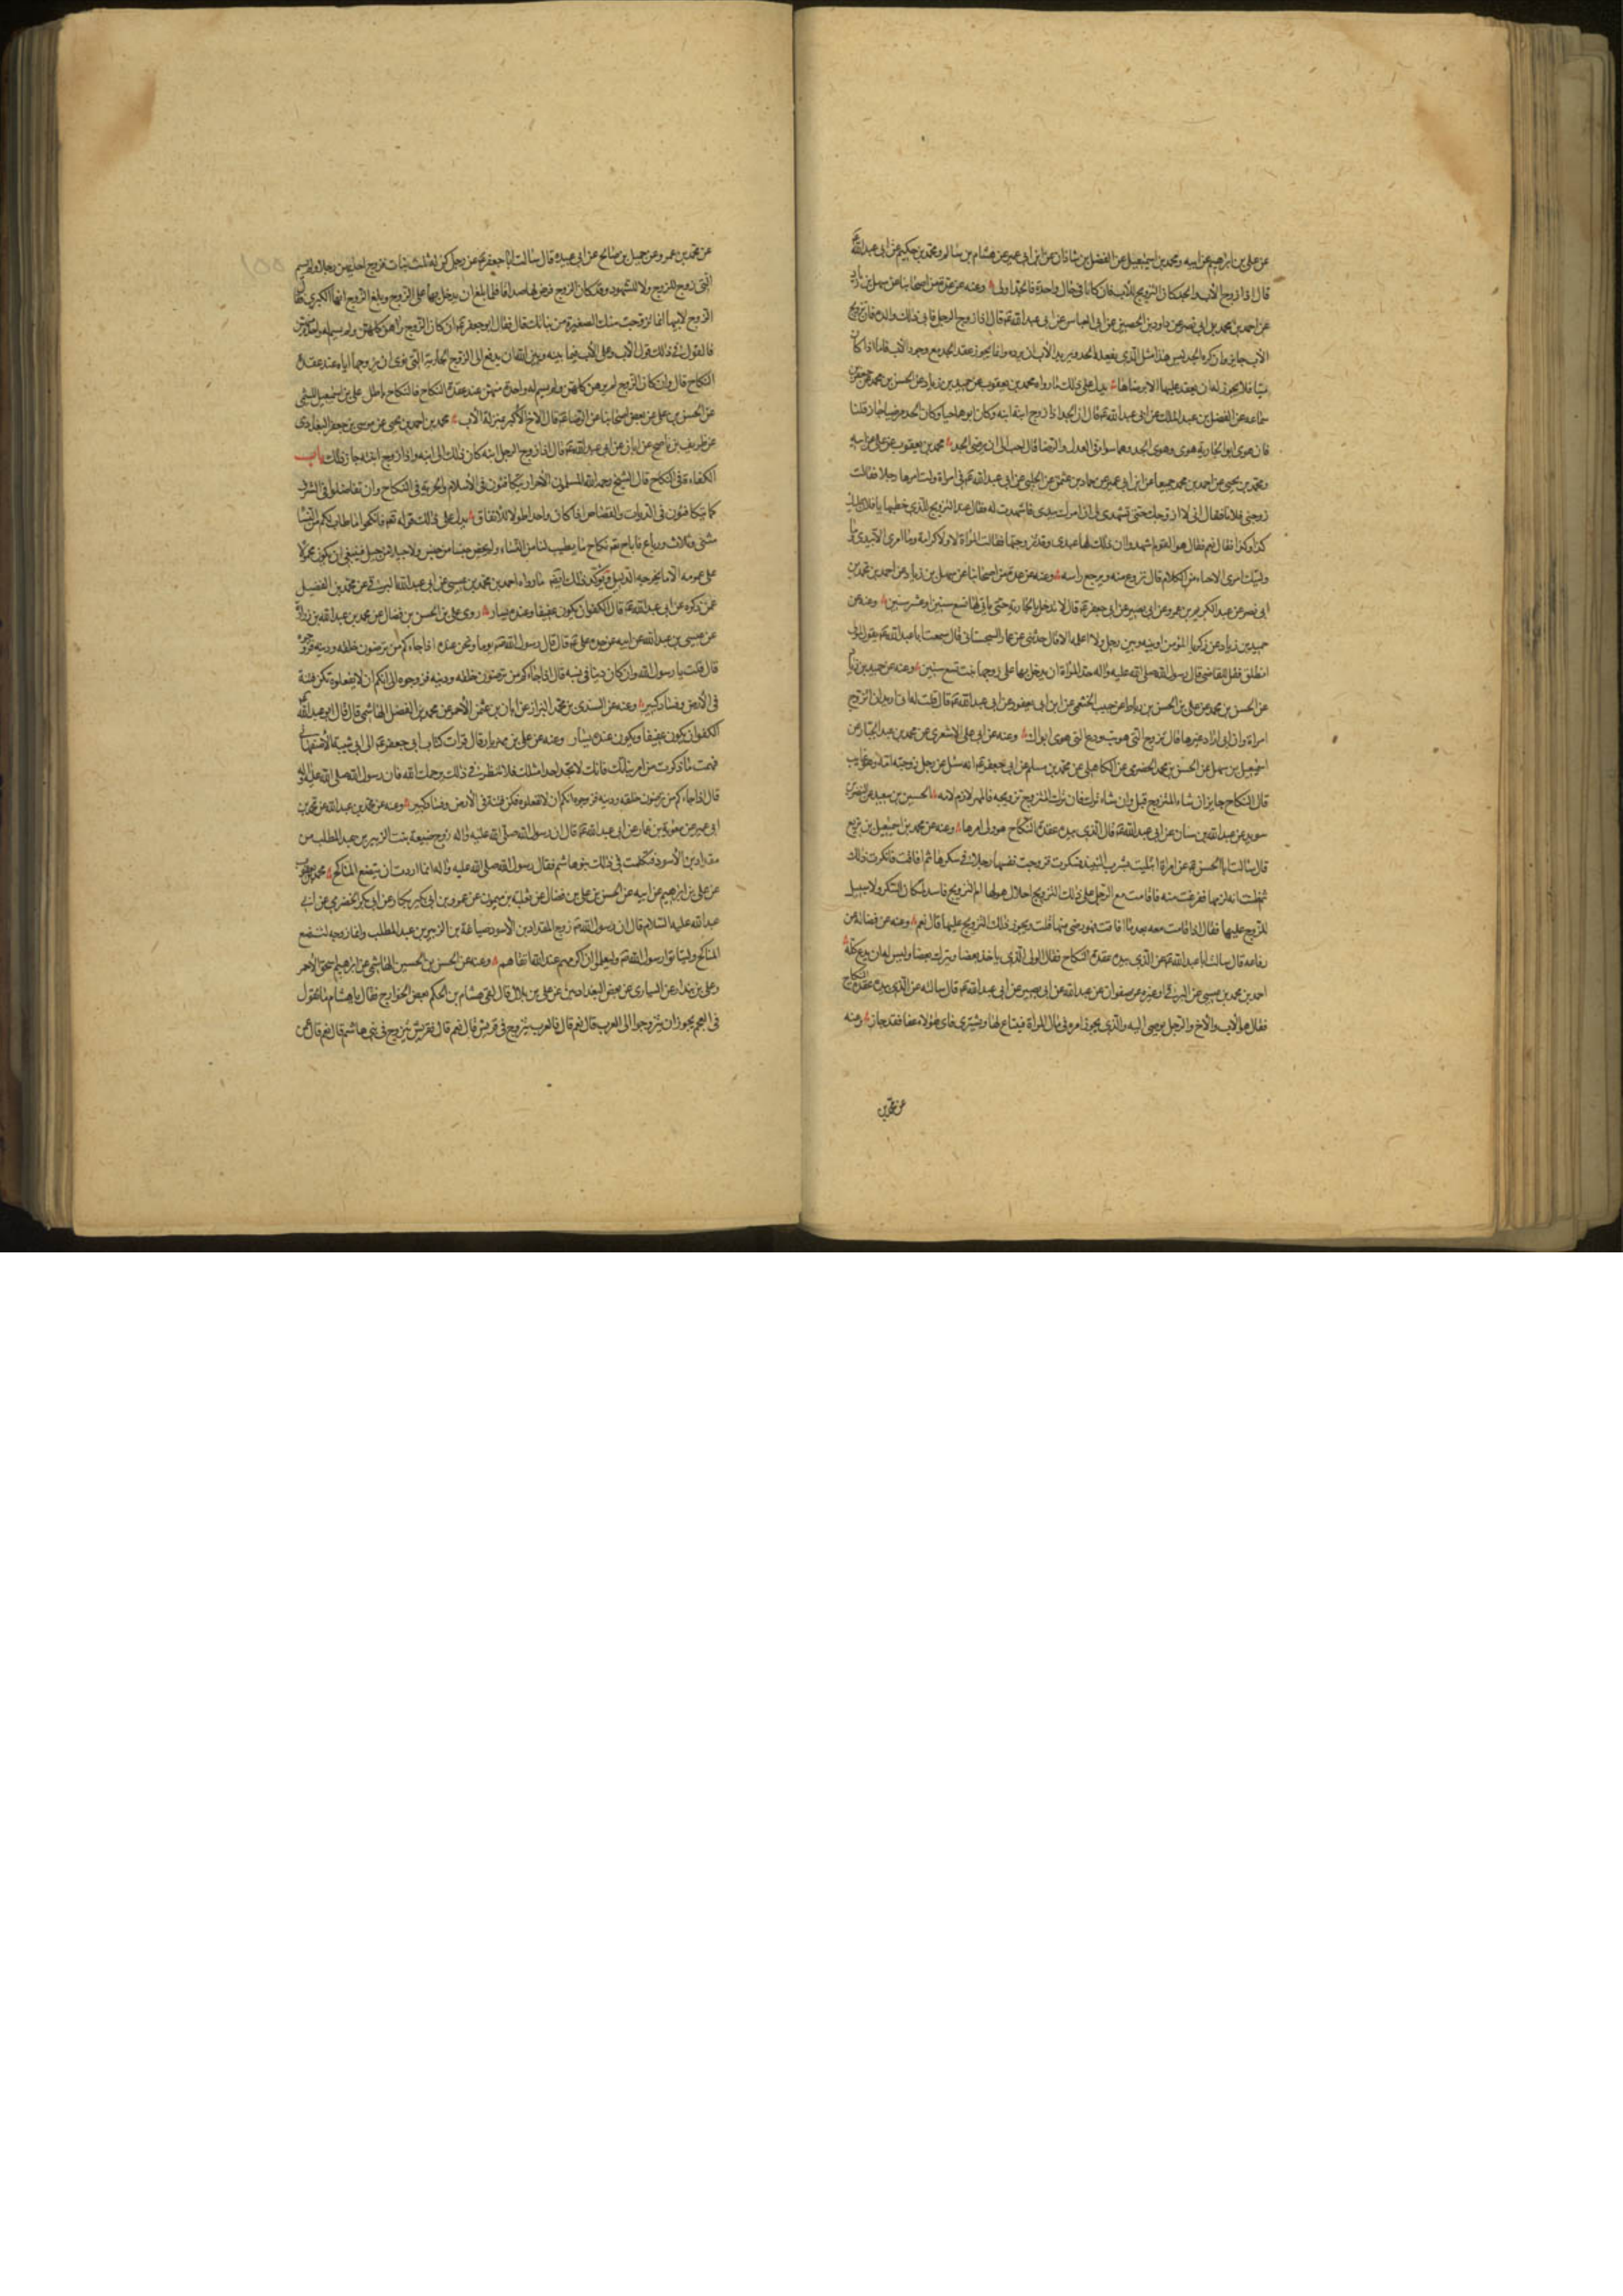 عن علی بن ابراهیم عن ابیه ومحمد بن اسمعیل عن الفضل بن شاذان عن ابن ابی عمیر عن هشام بن سالم ومحمد بن حکیم عن ابی عبدالله ع
قال اذا زوج الاب والجد کان التزویج للاول فان کانا فی حال واحدة فالجد اولی وعنه عن عدة من اصحابنا عن سهل بن زیاد
عن احمد بن محمد بن ابی نصر عن داود بن الحصین عن ابی العباس عن ابی عبدالله ع قال اذا زوج الرجل فابی ذلک والده فان تزویج
الاب جایز وان کره الجد لیس هذا مثل الذی یفعله الجد فیرید الاب ان یرده وانما یجوز عقد الجد مع وجود الاب فاما اذا کان
میتا فلا یجوز له ان یعقد علیها الا برضاها یدل علی ذلک ما رواه محمد بن یعقوب عن حمید بن زیاد عن الحسن بن محمد عن جعفر بن
سماعه عن الفضل بن عبد الملک عن ابی عبدالله ع قال ان الجد اذا زوج ابنة ابنه وکان ابوها حیا وکان الجد مرضیا جاز قلنا
فان هوی ابو الجاریة هوی وهوی الجد وهما سواء فی العدل والرضا قال احب الی ان ترضی بالجد محمد بن یعقوب عن علی عن ابیه
ومحمد بن یحیی عن احمد بن محمد جمیعا عن ابن ابی عمیر عن حماد بن عثمن عن الحلبی عن ابی عبدالله ع فی امراة ولت امرها رجلا فقالت
زوجنی فلانا فقال انی لا ازوجک حتی تشهدی لی ان امرک بیدی فاشهدت له فقال عند التزویج للذی خطبها یا فلان علیک
کذا وکذا فقال نعم فقال هو للقوم اشهدوا ان ذلک لها عندی وقد زوجتها نفسی فقالت المراة لا ولا کرامة وما امری الا بیدی وما
ولیتک امری الا حیاء من الکلام قال تنزع منه ویوجع راسه وعنه عن عدة من اصحابنا عن سهل بن زیاد عن احمد بن محمد بن
ابی نصر عن عبد الکریم بن عمرو عن ابی بصیر عن ابی جعفر ع قال لا یدخل بالجاریة حتی یاتی لها تسع سنین او عشر سنین وعنه عن
حمید بن زیاد عن زکریا المؤمن او بینه وبین رجل ولا اعلمه الا قال حدثنی عن عمار السجستانی قال سمعت ابا عبدالله ع یقول لمولی
انطلق فقل للقاضی قال رسول الله صلی الله علیه واله حد المراة ان یدخل بها علی زوجها بنت تسع سنین وعنه عن حمید بن زیاد
عن الحسن بن محمد عن علی بن الحسن بن رباط عن حبیب الخثعمی عن ابن ابی یعفور عن ابی عبدالله ع قال قلت له انی ارید ان اتزوج
امراة وان ابوی ارادا غیرها قال تزوج التی هویت ودع التی هوی ابواک وعنه عن ابی علی الاشعری عن محمد بن عبد الجبار عن
اسمعیل بن سهل عن الحسن بن محمد الحضرمی عن الکاهلی عن محمد بن مسلم عن ابی جعفر ع انه سئل عن رجل زوجته امه وهو غایب
قال النکاح جایز ان شاء المتزوج قبل وان شاء ترک فان ترک المتزوج تزویجه فالمهر لازم لامه الحسین بن سعید عن النضر بن
سوید عن عبدالله بن سنان عن ابی عبدالله ع قال الذی بیده عقدة النکاح هو ولی امرها وعنه عن محمد بن اسمعیل بن بزیع
قال سالت ابا الحسن ع عن امراة ابتلیت بشرب النبیذ فسکرت فزوجت نفسها رجلا فی سکرها ثم افاقت فانکرت ذلک
ثم ظنت انه یلزمها ففزعت منه فاقامت مع الرجل علی ذلک التزویج احلال هو لها ام التزویج فاسد لمکان السکر ولا سبیل
للزوج علیها فقال اذا اقامت معه بعد ما افاقت فهو رضی منها قلت ویجوز ذلک التزویج علیها قال نعم وعنه عن فضالة عن
رفاعه قال سالت ابا عبدالله ع عن الذی بیده عقدة النکاح فقال الولی الذی یاخذ بعضا ویترک بعضا ولیس له ان یدع کله
احمد بن محمد بن عیسی عن البرقی او غیره عن صفوان عن عبدالله عن ابی بصیر عن ابی عبدالله ع قال سالته عن الذی بیده عقدة النکاح
فقال هو الاب والاخ والرجل یوصی الیه والذی یجوز امره فی مال المراة فیبتاع لها ویشتری فای هؤلاء عفا فقد جاز وعنه
عن محمد بن
عن محمد بن عمرو عن جمیل بن صالح عن ابی عبیده قال سالت ابا جعفر ع عن رجل کن له ثلث بنات فزوج احدیهن رجلا ولم یسم
التی زوج للزوج ولا للشهود وقد کان الزوج فرض لها صداقا فلما بلغ ان یدخل بها علی الزوج وبلغ الزوج انها الکبری فقال
الزوج لابیها انما تزوجت منک الصغیرة من بناتک قال فقال ابو جعفر ع ان کان الزوج راهن کلهن ولم یسم له واحدة منهن
فالقول فی ذلک قول الاب وعلی الاب فیما بینه وبین الله ان یدفع الی الزوج الجاریة التی نوی ان یزوجها ایاه عند عقدة
النکاح قال وان کان الزوج لم یرهن کلهن ولم یسم له واحدة منهن عند عقدة النکاح فالنکاح باطل علی بن اسمعیل المیثمی
عن الحسن بن علی عن بعض اصحابنا عن الرضا ع قال الاخ الاکبر بمنزلة الاب محمد بن احمد بن یحیی عن موسی بن جعفر البغدادی
عن ظریف بن ناصح عن ابان عن ابی عبدالله ع قال اذا زوج الرجل ابنه کان ذلک الی ابنه واذا زوج ابنته جاز ذلک باب
الکفاءة فی النکاح قال الشیخ رحمه الله المسلمون الاحرار یتکافئون فی الاسلام والحریة فی النکاح وان تفاضلوا فی الشرف
کما یتکافئون فی الدیات والقصاص اذا کان واجدا طولا للانفاق یدل علی ذلک قوله تعم فانکحوا ما طاب لکم من النساء
مثنی وثلاث ورباع فاباح تعم نکاح ما یطیب لنا من النساء ولم یخص جنسا من جنس ولا جیلا من جیل فینبغی ان یکون محمولا
علی عمومه الا ما یخرجه الدلیل ویؤکد ذلک ایضا ما رواه احمد بن محمد بن عیسی عن ابی عبدالله البرقی عن محمد بن الفضیل
عمن ذکره عن ابی عبدالله ع قال الکفو ان یکون عفیفا وعنده یسار روی علی بن الحسن بن فضال عن محمد بن عبدالله بن زرارة
عن عیسی بن عبدالله عن ابیه عن جده عن علی ع قال قال رسول الله ص یوما ونحن عنده اذا جاءکم من ترضون خلقه ودینه فزوجوه
قال قلت یا رسول الله وان کان دنیا فی نسبه قال اذا جاءکم من ترضون خلقه ودینه فزوجوه انکم ان لا تفعلوه تکن فتنة
فی الارض وفساد کبیر وعنه عن السندی بن محمد البزاز عن ابان بن عثمن الاحمر عن محمد بن الفضل الهاشمی قال قال ابو عبدالله ع
الکفو ان یکون عفیفا ویکون عنده یسار وعنه عن علی بن مهزیار قال قرات کتاب ابی جعفر ع الی ابی شیبة الاصبهانی
فهمت ما ذکرت من امر بناتک فانک لا تجد احدا مثلک فلا تنظر فی ذلک یرحمک الله فان رسول الله صلی الله علیه واله
قال اذا جاءکم من ترضون خلقه ودینه فزوجوه انکم ان لا تفعلوه تکن فتنة فی الارض وفساد کبیر وعنه عن محمد بن عبدالله عن محمد بن
ابی عمیر عن معویة بن عمار عن ابی عبدالله ع قال ان رسول الله صلی الله علیه واله زوج ضبیعة بنت الزبیر بن عبد المطلب من
مقداد بن الاسود فتکلمت فی ذلک بنو هاشم فقال رسول الله صلی الله علیه واله انما اردت ان یتضع المناکح محمد بن یعقوب
عن علی بن ابرهیم عن ابیه عن الحسن بن علی بن فضال عن ثعلبة بن میمون عن عمرو بن ابی بکار عن ابی بکر الحضرمی عن ابی
عبدالله علیه السلام قال ان رسول الله ص زوج المقداد بن الاسود ضباعة بنت الزبیر بن عبد المطلب وانما زوجه لتتضع
المناکح ولیتاسوا برسول الله ص ولیعلموا ان اکرمهم عند الله اتقاهم وعنه عن الحسن بن الحسین الهاشمی عن ابرهیم بن اسحق الاحمر
وعلی بن بندار عن السیاری عن بعض البغدادیین عن علی بن بلال قال لقی هشام بن الحکم بعض الخوارج فقال یا هشام ما تقول
فی العجم یجوز ان یتزوجوا الی العرب قال نعم قال فالعرب یتزوج فی قریش قال نعم قال فقریش یتزوج فی بنی هاشم قال نعم قال عمن